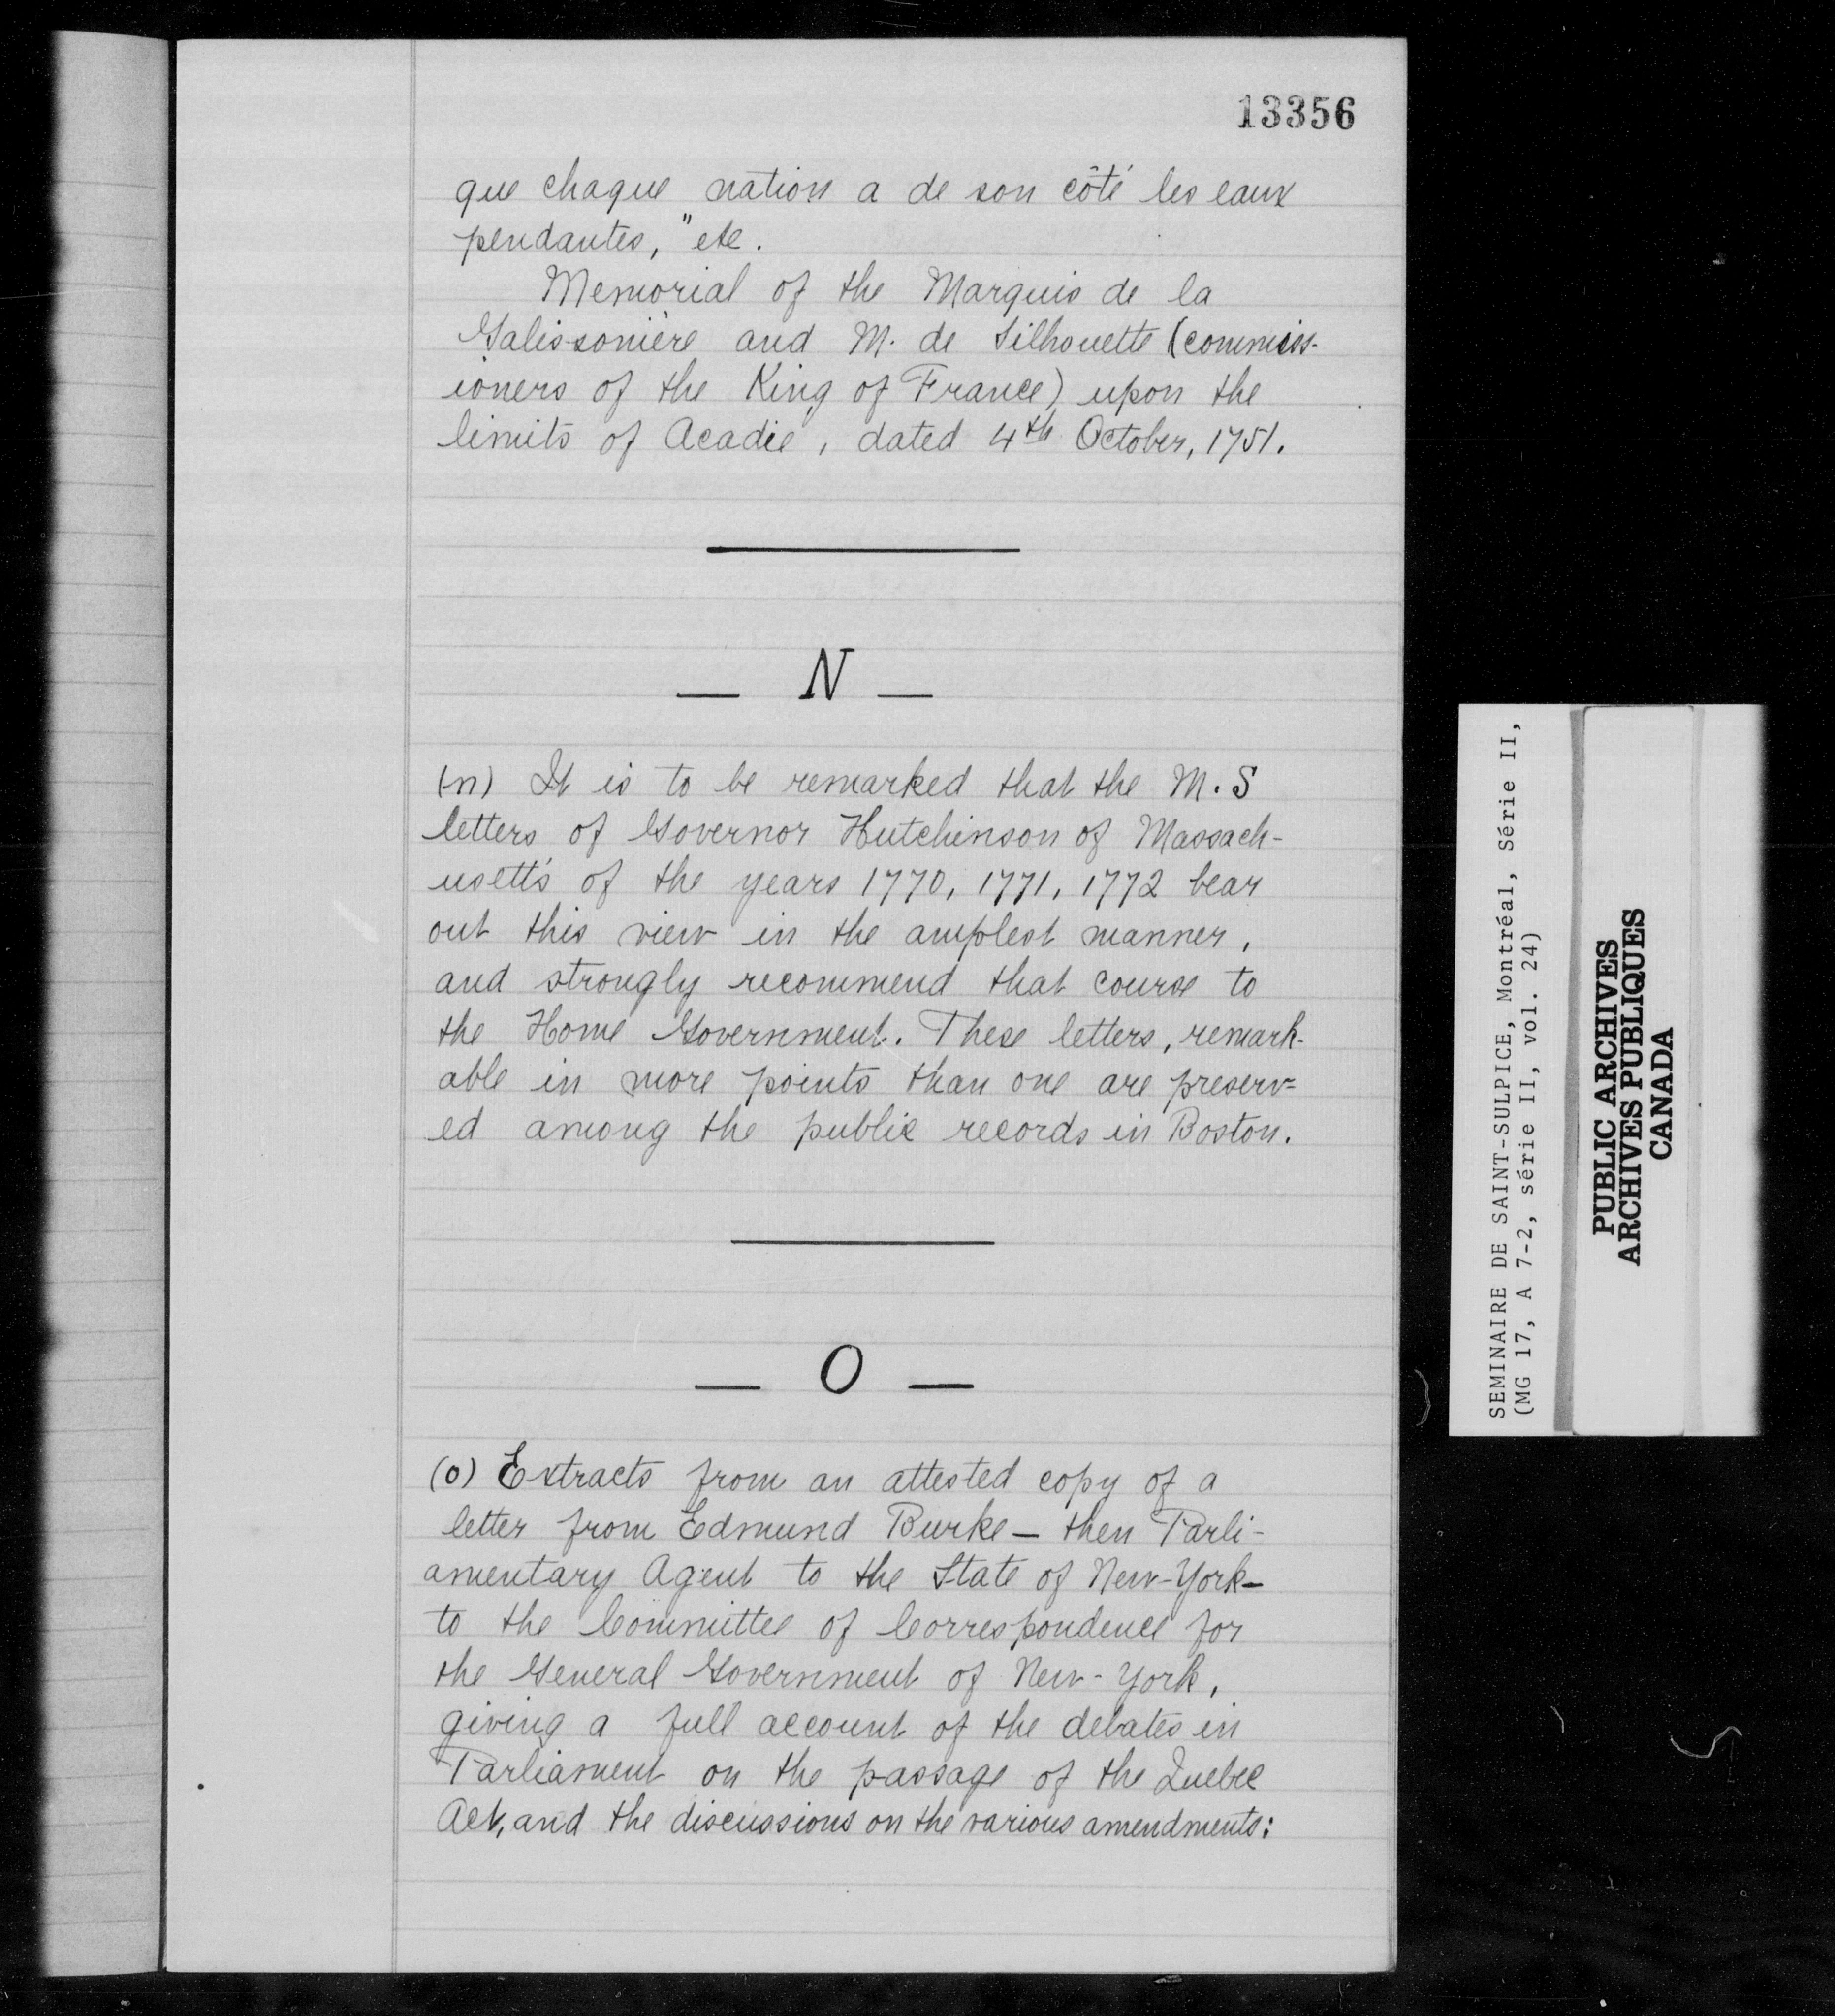 13356
que chaque nation a de son côté les eaux
pendantes," etc.
Memorial of the Marquis de la
Galissonière and M. de Silhouette (commiss-
ioners of the King of France) upon the
limits of Acadie, dated 4th October, 1751.
— N —
(n) It is to be remarked that the M.S
letters of Governor Hutchinson of Massach-
usett's of the years 1770, 1771, 1772 bear
out this view in the amplest manner,
and strongly recommend that course to
the Home Government. These letters, remark-
able in more points than one are preserv=
ed among the public records in Boston.
— O —
(o) Extracts from an attested copy of a
letter from Edmund Burke — then Parli-
amentary Agent to the State of New-York—
to the Committee of Correspondence for
the General Government of New-York,
giving a full account of the debates in
Parliament on the passage of the Quebec
Act, and the discussions on the various amendments:
SEMINAIRE DE SAINT-SULPICE, Montréal, Série II,
(MG 17, A 7-2, série II, vol. 24)
PUBLIC ARCHIVES
ARCHIVES PUBLIQUES
CANADA